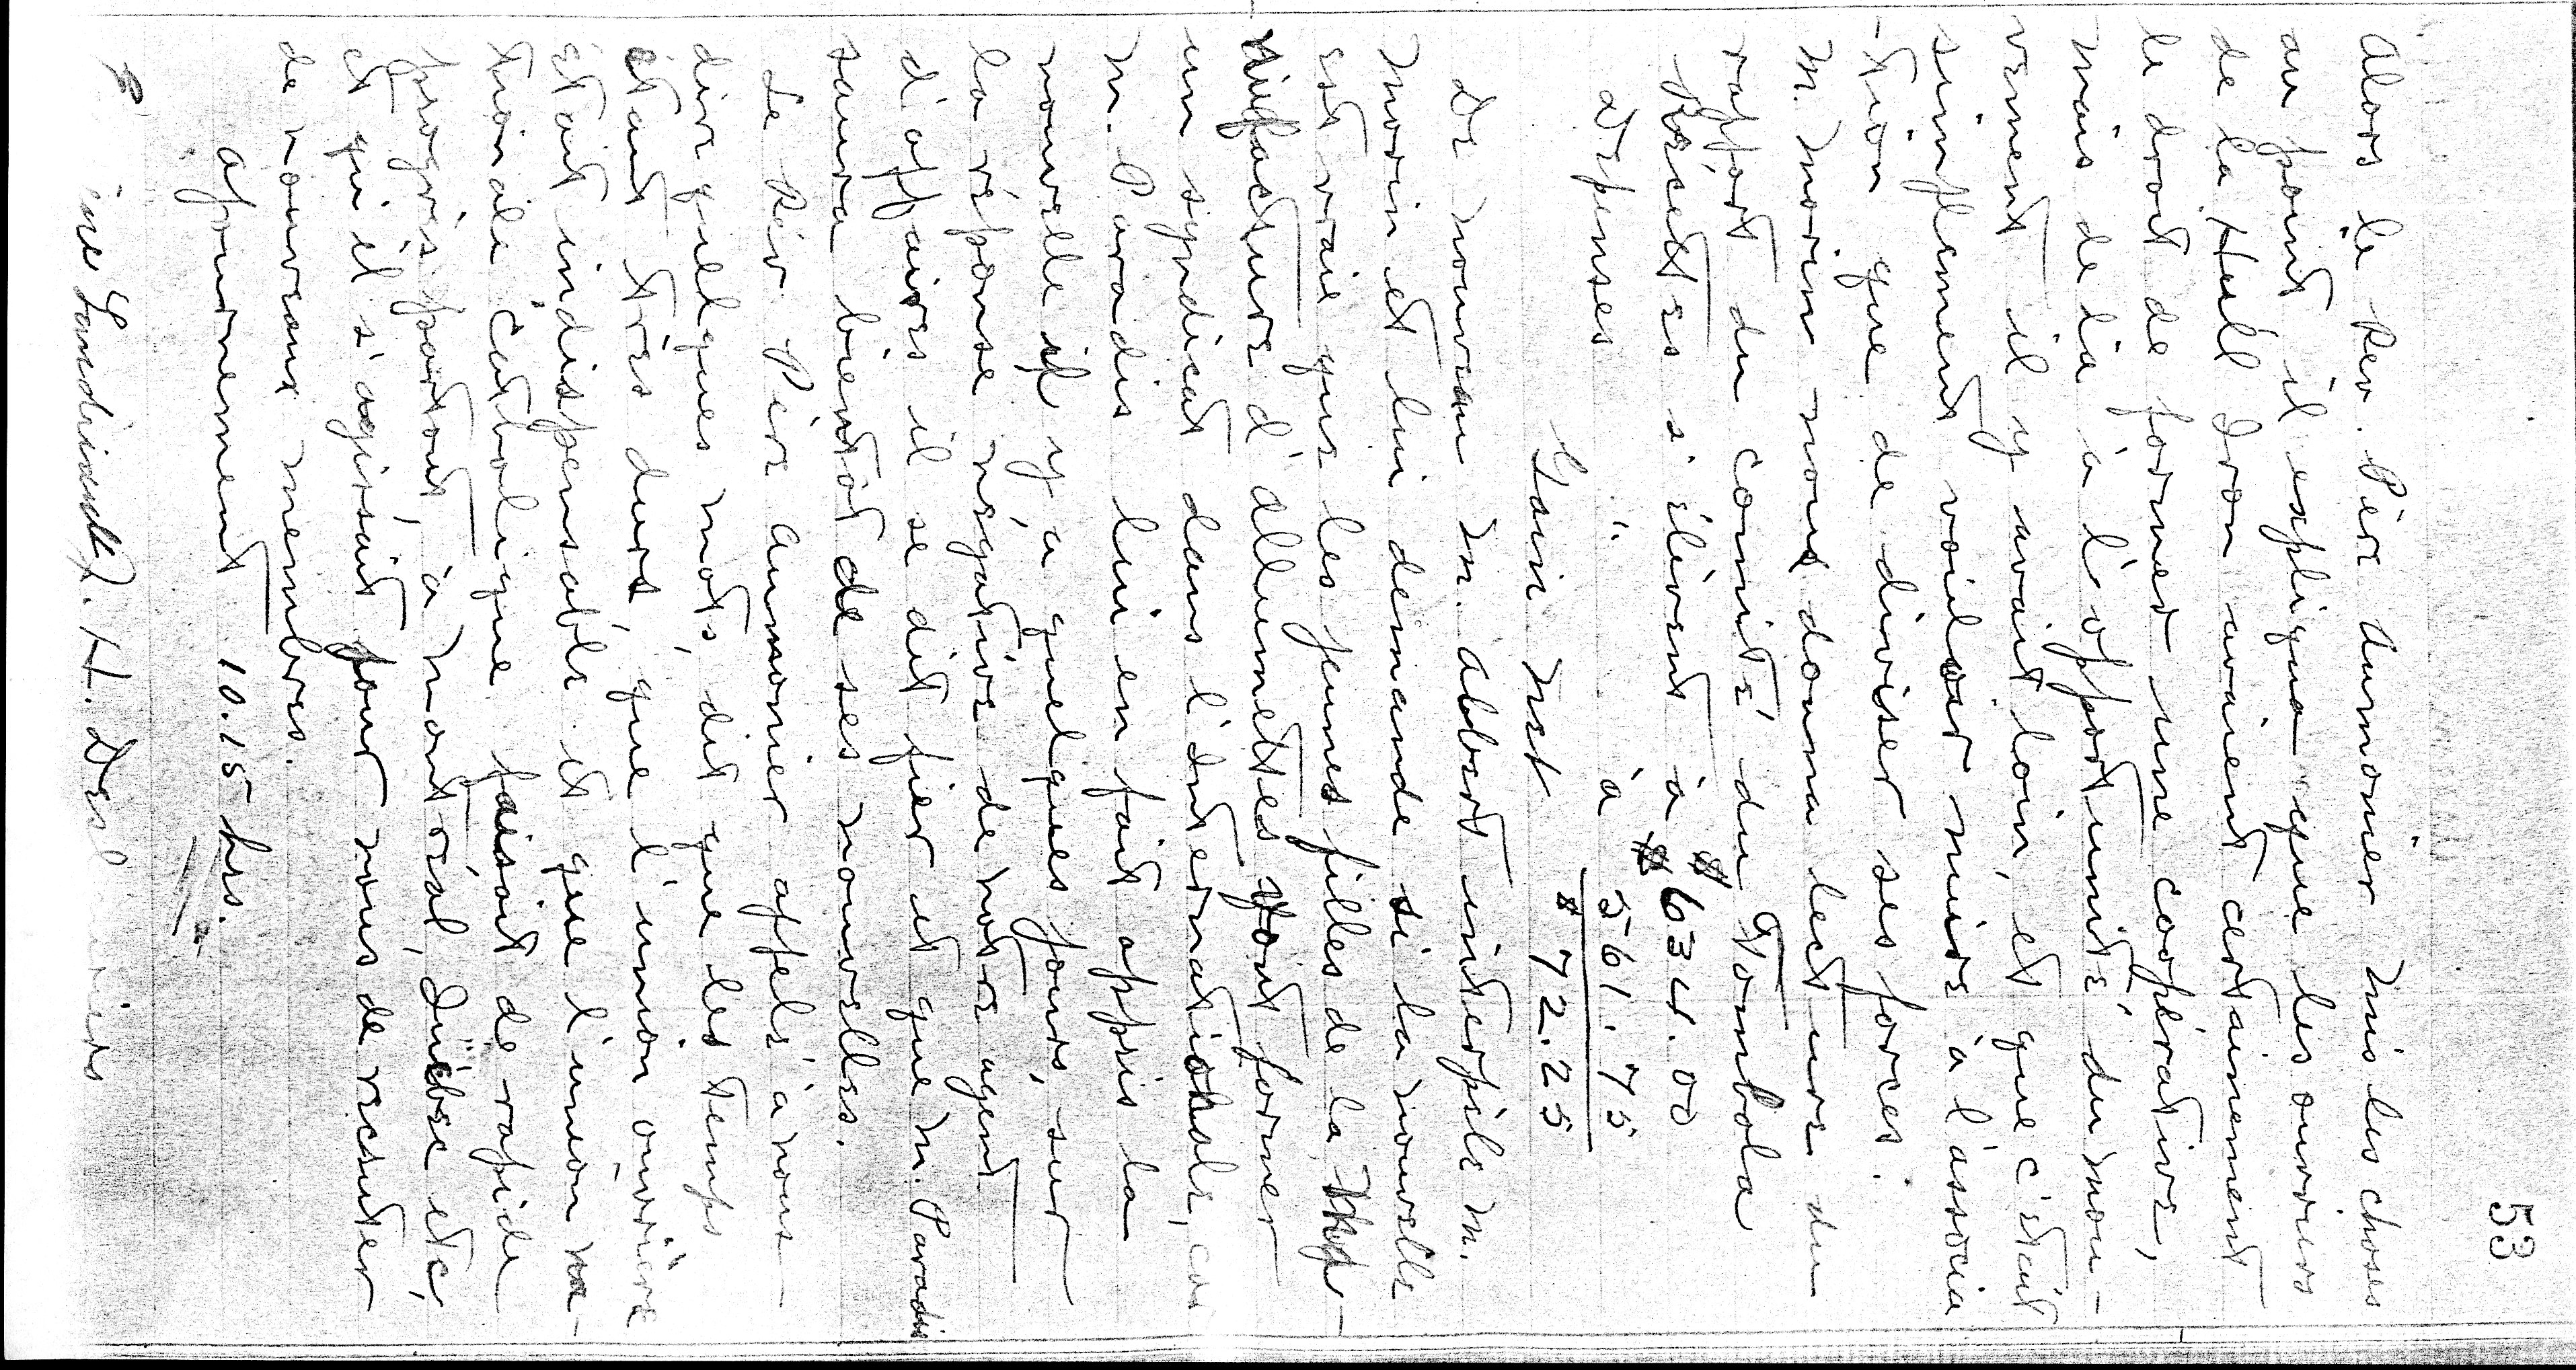 53
Alors le Rev. Père Aumônier mis les choses
au point il expliqua que les ouvriers
de la Hull Iron avaient certainement
le droit de former une coopérative,
mais de là à l'opportunité du mou-
vement il y avait loin, et que c'était
simplement vouloir nuire à l'associa
-tion que de diviser ses forces.
M. Morin nous donna lecture du
rapport du comité du Tombola
Recettes s'élèvent à $634.00
Depenses " à $561.75
Gain net $72.25
De nouveau M. Albert interpèle M.
Morin et lui demande si la nouvelle
est vraie que les jeunes filles de la
nufacture d'allumettes vont former
un syndicat dans l'Internationale, car
M. Paradis lui en fait appris la
nouvelle il y a quelques jours, sur
la réponse négative de notre agent
d'affaires il se dit fier et que M. Paradis
saura bientot de ses nouvelles.
Le Rév Père Aumonier appelé à nous
dire quelques mots, dit que les temps
étant très durs, que l'union ouvrière
était indispensable et que l'union na-
tionale catholique faisait de rapide
progrès partout, à Montréal, Québec etc,
et qu'il s'agissait pour nous de recruter
de nouveaux membres.
Ajournement 10.15 hrs.
J. H.